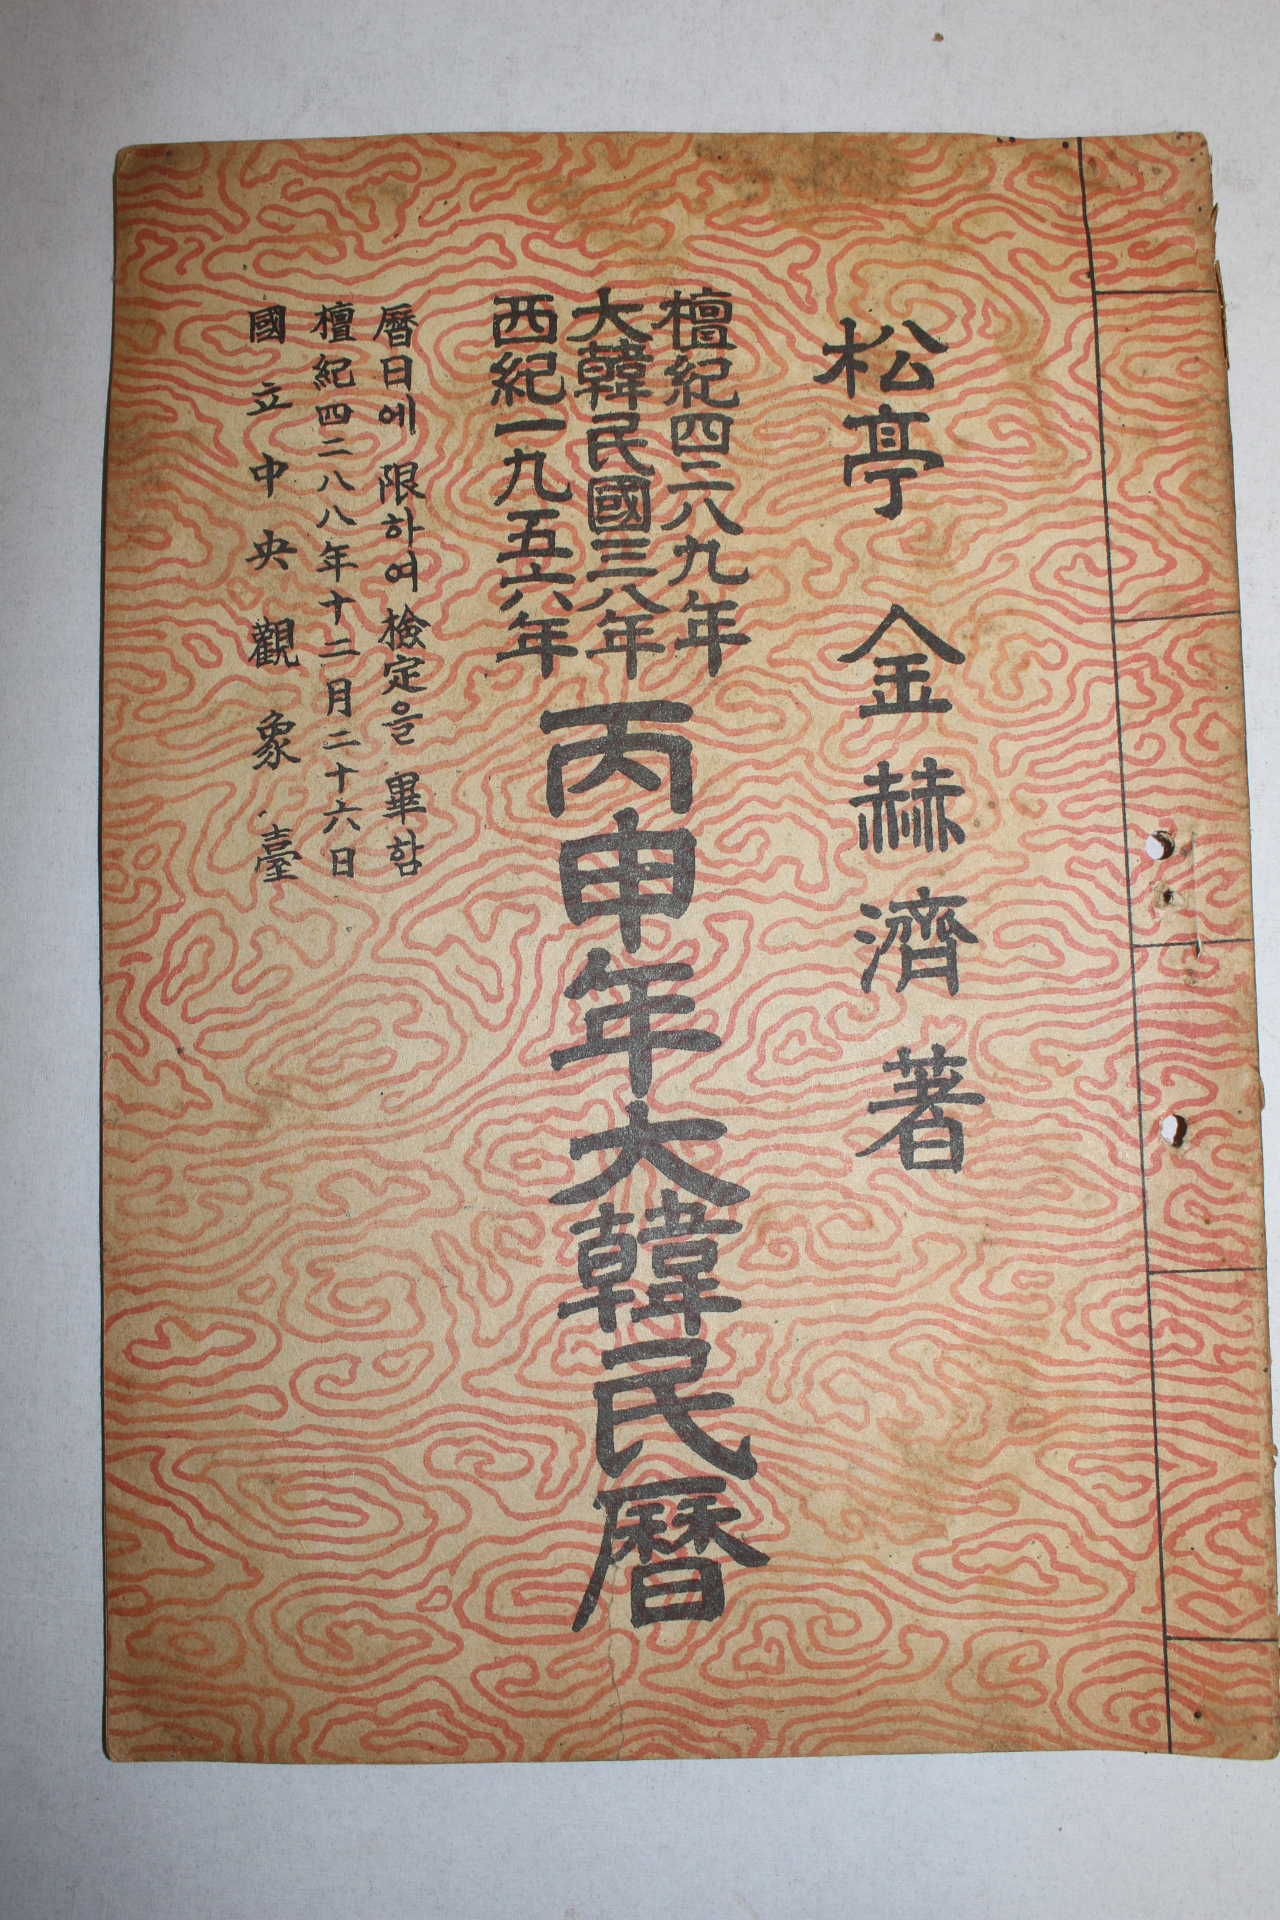 松亭 金赫濟著
檀紀四二八九年
大韓民國三八年
西紀一九五六年
丙申年大韓民曆
曆日에 限하여 檢定을 畢함
檀紀四二八八年十二月二十六日
國立中央觀象臺